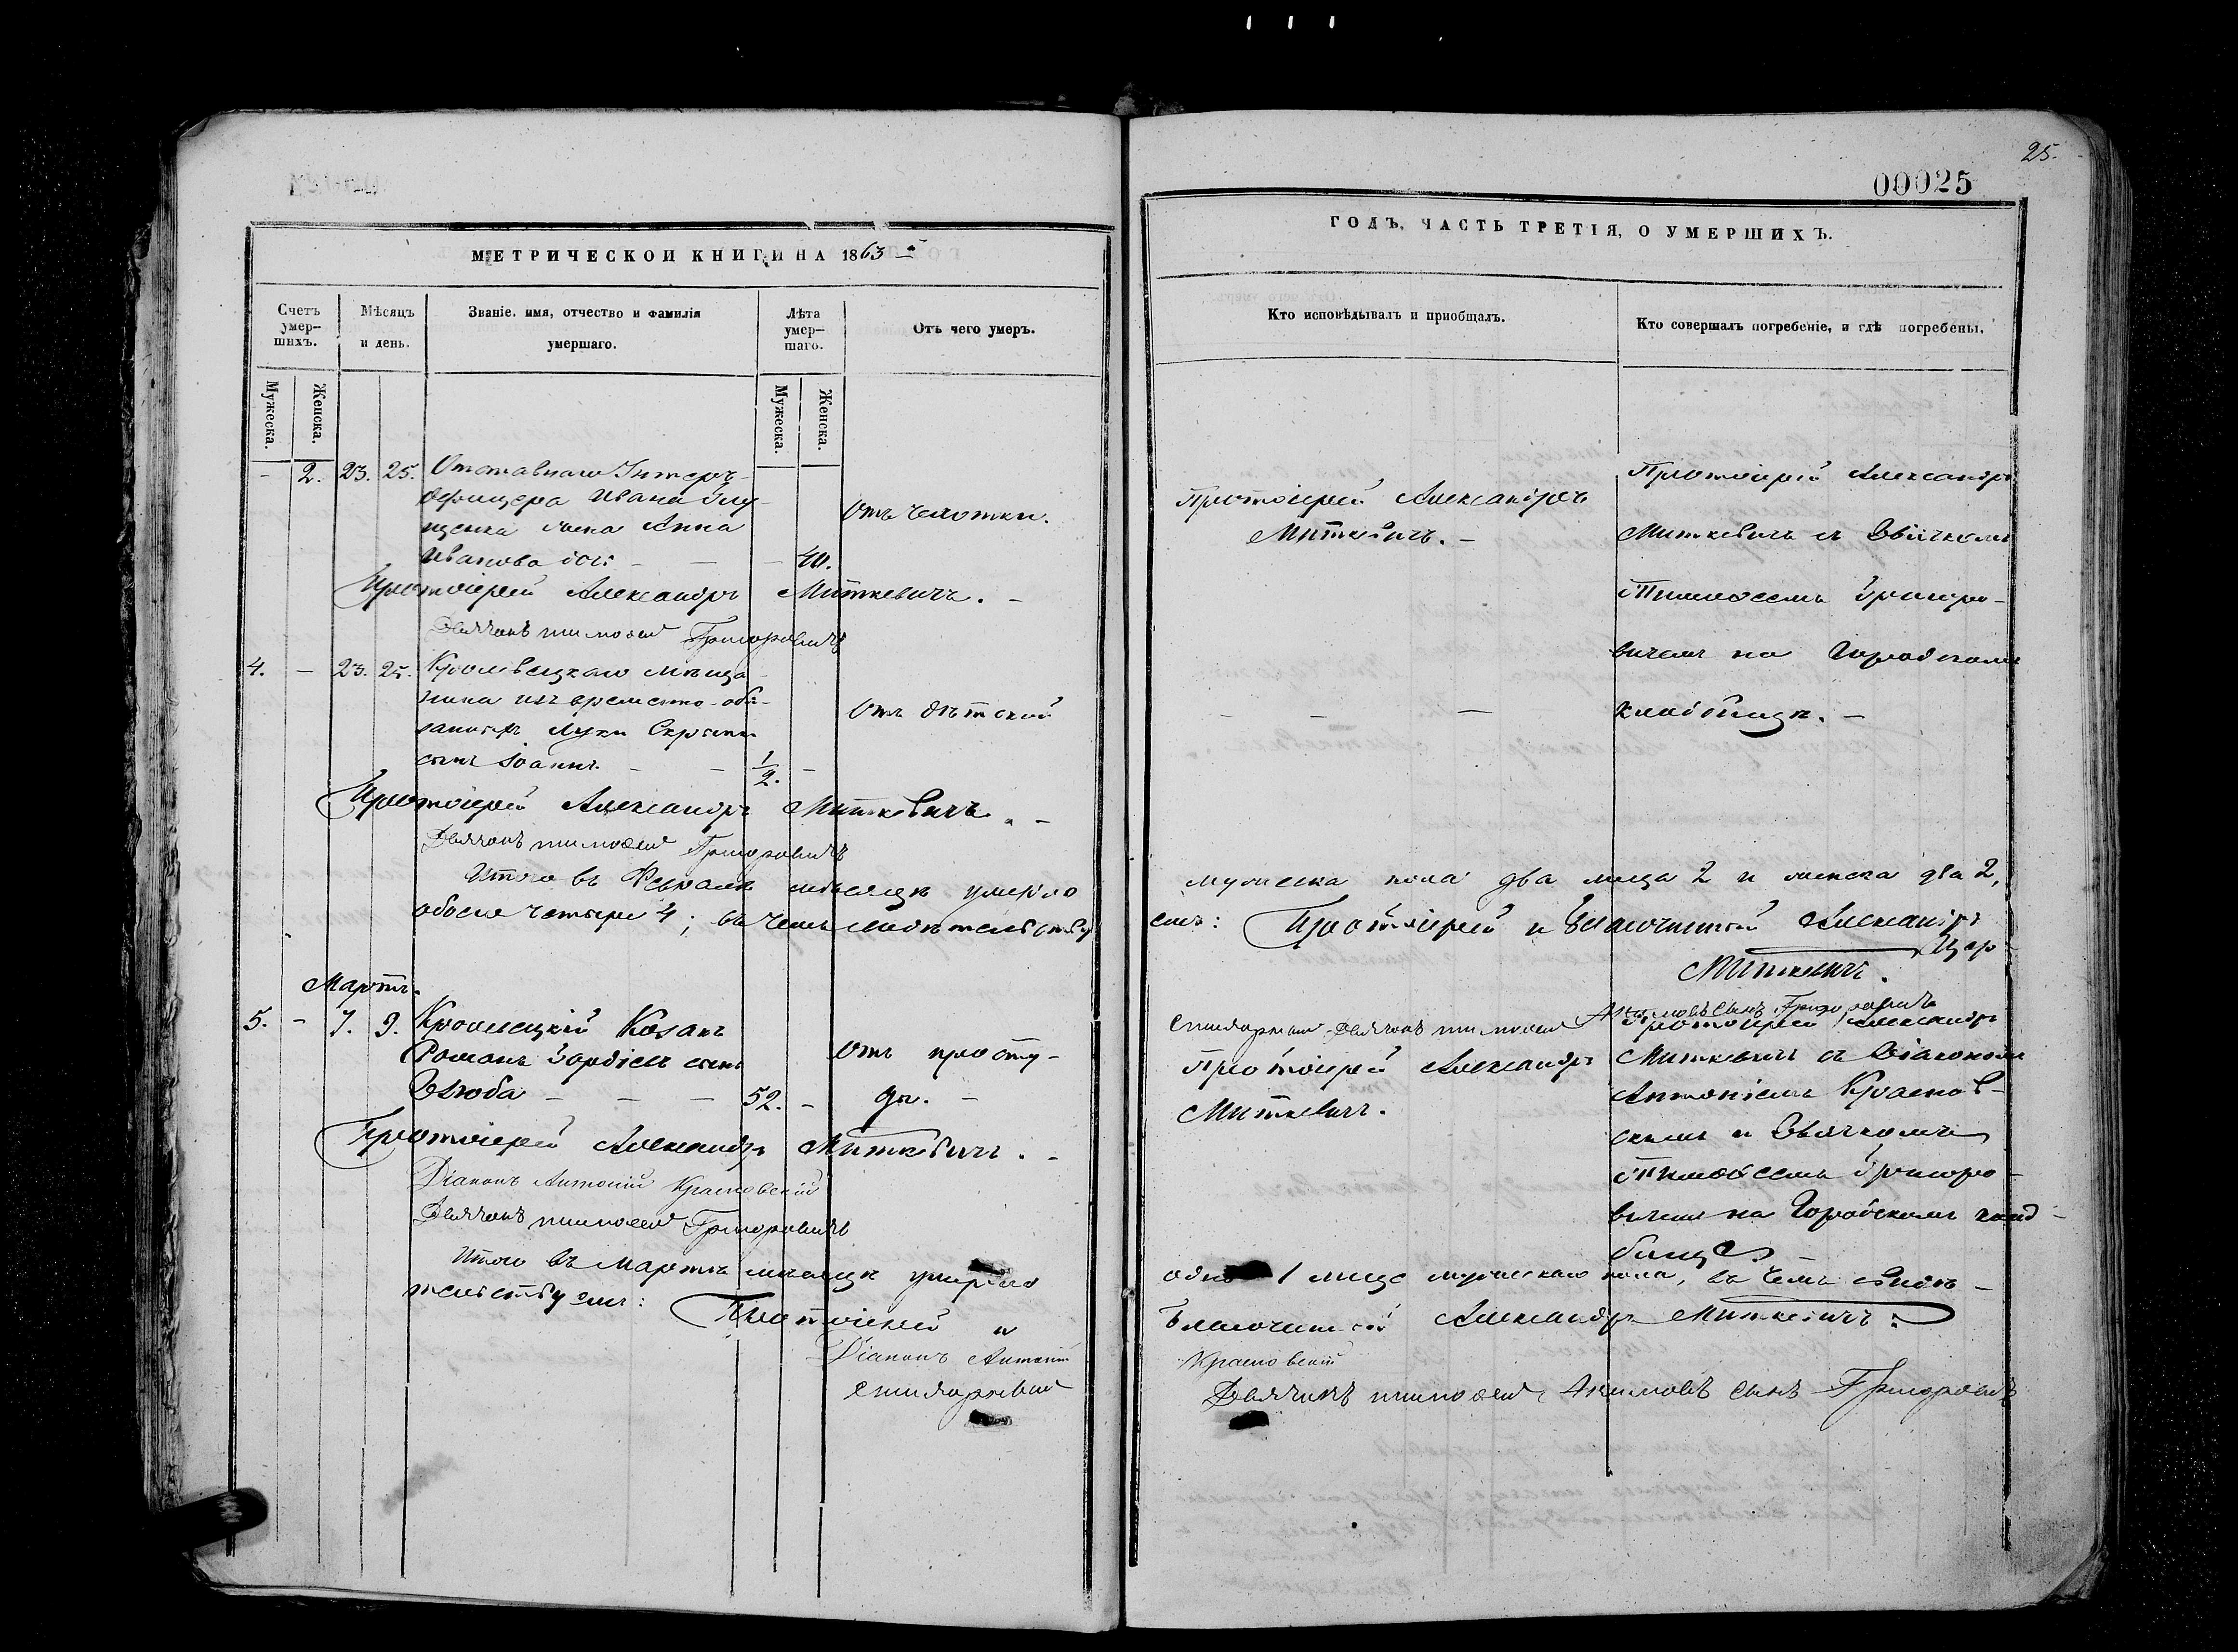 МЕТРИЧЕСКОЙ КНИГИ НА 1863 й
Счетъ умер-шихъ.
Мѣсяцъ и день.
Званіе, имя, отчество и фамилія умершаго.
Лѣта умер-шаго.
Отъ чего умеръ.
Мужеска.
Женска.
Мужеска.
Женска.
- 2. 23. 25. Отставнаго Унтеръ-
офицера Ивана
жена Анна
Отъ чахотки.
Иванова дочь - - - 40.
Протоіерей Александръ Миткевичъ. -
Дьячокъ Тимоѳей Григоровичъ
4. - 23. 25. Кролевецкаго мѣща-
нина изъ временно-обя-
занныхъ Луки
Отъ дѣтской
сынъ Іоаннъ. - - 1/2. -
Протоіерей Александръ Миткевичъ. -
Дьячокъ Тимоѳей Григоровичъ
Итого въ Февралѣ мѣсяцѣ умерло
обоего четыре 4; въ чемъ свидѣтельству
Мартъ.
5. - 7. 9. Кролевецкій Козакъ
Романъ Гордіевъ сынъ
Отъ просту-
Дзюба - - - 52. - ды. -
Протоіерей Александръ Миткевичъ. -
Діаконъ Антоній Красновскій
Дьячокъ Тимоѳей Григоровичъ
Итого въ Мартѣ мѣсяцѣ умерло
тельствуемъ: Протоіерей и
Діаконъ Антоній
Стихарный
25.
00025
ГОДЪ, ЧАСТЬ ТРЕТІЯ, О УМЕРШИХЪ.
Кто исповѣдывалъ и приобщалъ.
Кто совершалъ погребеніе, и гдѣ погребены.
Протоіерей Александръ
Миткевичъ. -
Протоіерей Александръ
Миткевичъ съ Дьячкомъ
Тимоѳеемъ Григоро-
вичемъ на Городскомъ
- - - кладбищѣ. -
мужеска пола два лица 2 и женска два 2,
емъ: Протоіерей и Благочинный Александръ
Миткевичъ.
Стихарный Дьячокъ Тимоѳей Акимовъ сынъ Григоровичъ
Протоіерей Александръ
Миткевичъ.
Протоіерей Александръ
Миткевичъ съ Діакономъ
Антоніемъ Краснов-
скимъ и Дьячкомъ
Тимоѳеемъ Григоро-
вичемъ на Городскомъ клад-
бищѣ. -
одно 1 лице мужескаго пола, въ чемъ свидѣ-
Благочинный Александръ Миткевичъ.
Красновскій
Дьячокъ Тимоѳей Акимовъ сынъ Григоровичъ